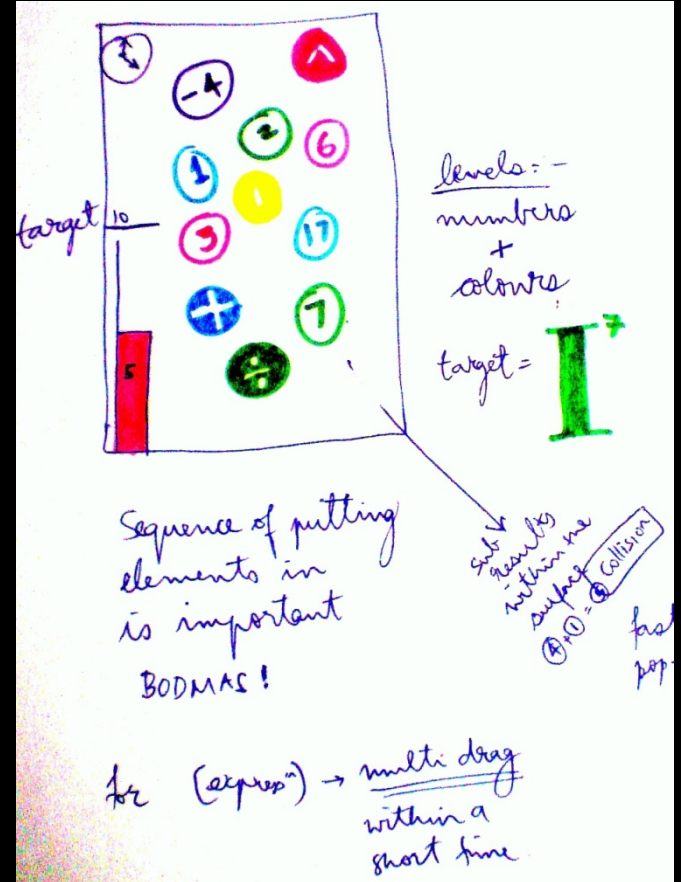 ^
-4
2
6
1
target 10
3
17
+
7
÷
5
levels:-
numbers
+
colours
target = 7
Sequence of putting
elements in
is important
BODMAS!
sub
results
within the
surface
4+1=5 Collision
fast
pop-
for (expresⁿ) → multi drag
within a
short time